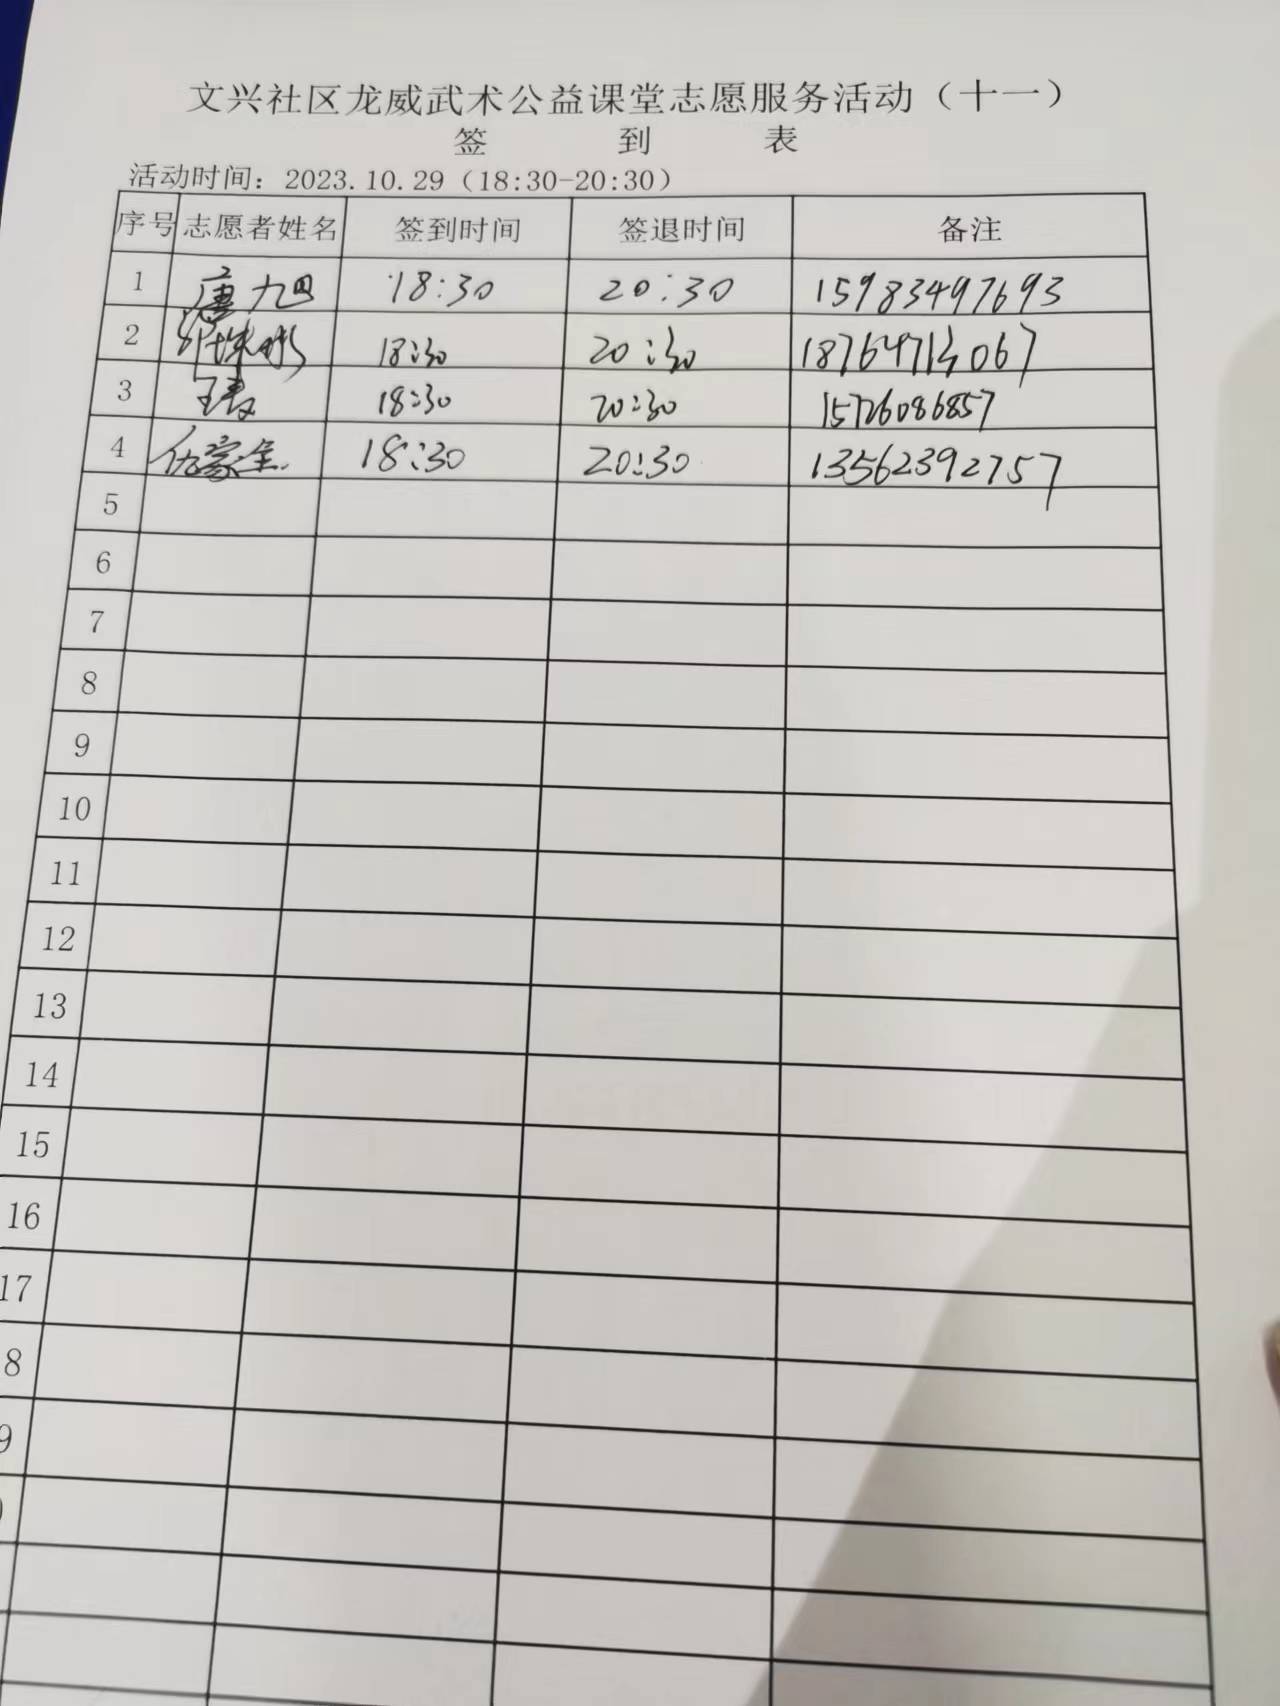 文兴社区龙威武术公益课堂志愿服务活动（十一）
签 到 表
活动时间：2023.10.29（18:30-20:30）
序号 志愿者姓名 签到时间 签退时间 备注
1 唐旭 18:30 20:30 15983497693
2 18:30 20:30
3 18:30 20:30 15726086857
4 仇家全 18:30 20:30 13562392757
5
6
7
8
9
10
11
12
13
14
15
16
17
8
9